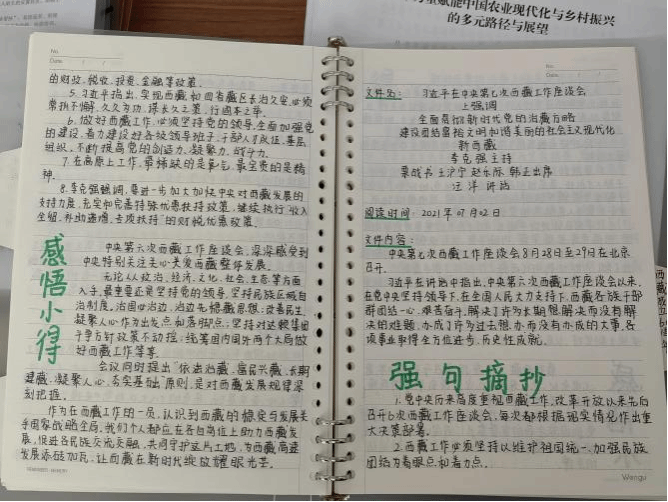 赋能中国农业现代化与乡村振兴
的多元路径与展望
No.
Date
的财政、税收、投资、金融等政策。
5. 习近平指出，实现西藏和四省藏区长治久安，必须
常抓不懈、久久为功，谋长久之策，行固本之举。
6. 做好西藏工作，必须坚持党的领导，全面加强党
的建设，着力建设好各级领导班子、干部人才队伍、基层
组织，不断提高党的创造力、凝聚力、战斗力。
7. 在高原上工作，最稀缺的是氧气，最宝贵的是精
神。
8. 李克强强调，要进一步加大加快中央对西藏发展的
支持力度，充实和完善特殊优惠扶持政策，继续执行"收入
全留、补助递增、专项扶持"的财税优惠政策。
感悟小得
中央第六次西藏工作座谈会，深深感受到
中央特别关注关心关爱西藏整体发展。
无论从政治、经济、文化、社会、生态等方面
入手，最重要还是坚持党的领导，坚持民族区域自
治制度，治国必治边、治边先稳藏思想；改善民生，
凝聚人心作为出发点和落脚点；坚持对达赖集团
斗争方针政策不动摇；统筹国内国外两个大局做
好西藏工作等等。
会议同时提出"依法治藏、富民兴藏、长期
建藏、凝聚人心、夯实基础"原则，是对西藏发展规律深
刻把握。
作为在西藏工作的一员，认识到西藏的稳定与发展关
乎国家战略全局，我们个人都应在各自岗位上助力西藏发
展，促进各民族交流交融，共同守护这片土地，为西藏高速
发展添砖加瓦，让西藏在新时代绽放耀眼光芒。
No.
Date
文件名：习近平在中央第七次西藏工作座谈会
上强调
全面贯彻新时代党的治藏方略
建设团结富裕文明和谐美丽的社会主义现代化
新西藏
李克强主持
栗战书 王沪宁 赵乐际 韩正出席
汪洋 讲话
阅读时间：2021年07月02日
文件内容：
中央第七次西藏工作座谈会8月28日至29日在北京
召开。
习近平在讲话中指出，中央第六次西藏工作座谈会以来，
在党中央坚持领导下，在全国人民大力支持下，西藏各族干部
群团结一心、艰苦奋斗，解决了许多长期想解决而没有解
决的难题，办成了许多过去想办而没有办成的大事，各
项事业取得全方位进步、历史性成就。
强句摘抄
1. 党中央历来高度重视西藏工作，改革开放以来先后
召开6次西藏工作座谈会，每次都根据现实情况作出重
大决策部署。
2. 西藏工作必须坚持以维护祖国统一、加强民族
团结为着眼点和着力点。
Wengu